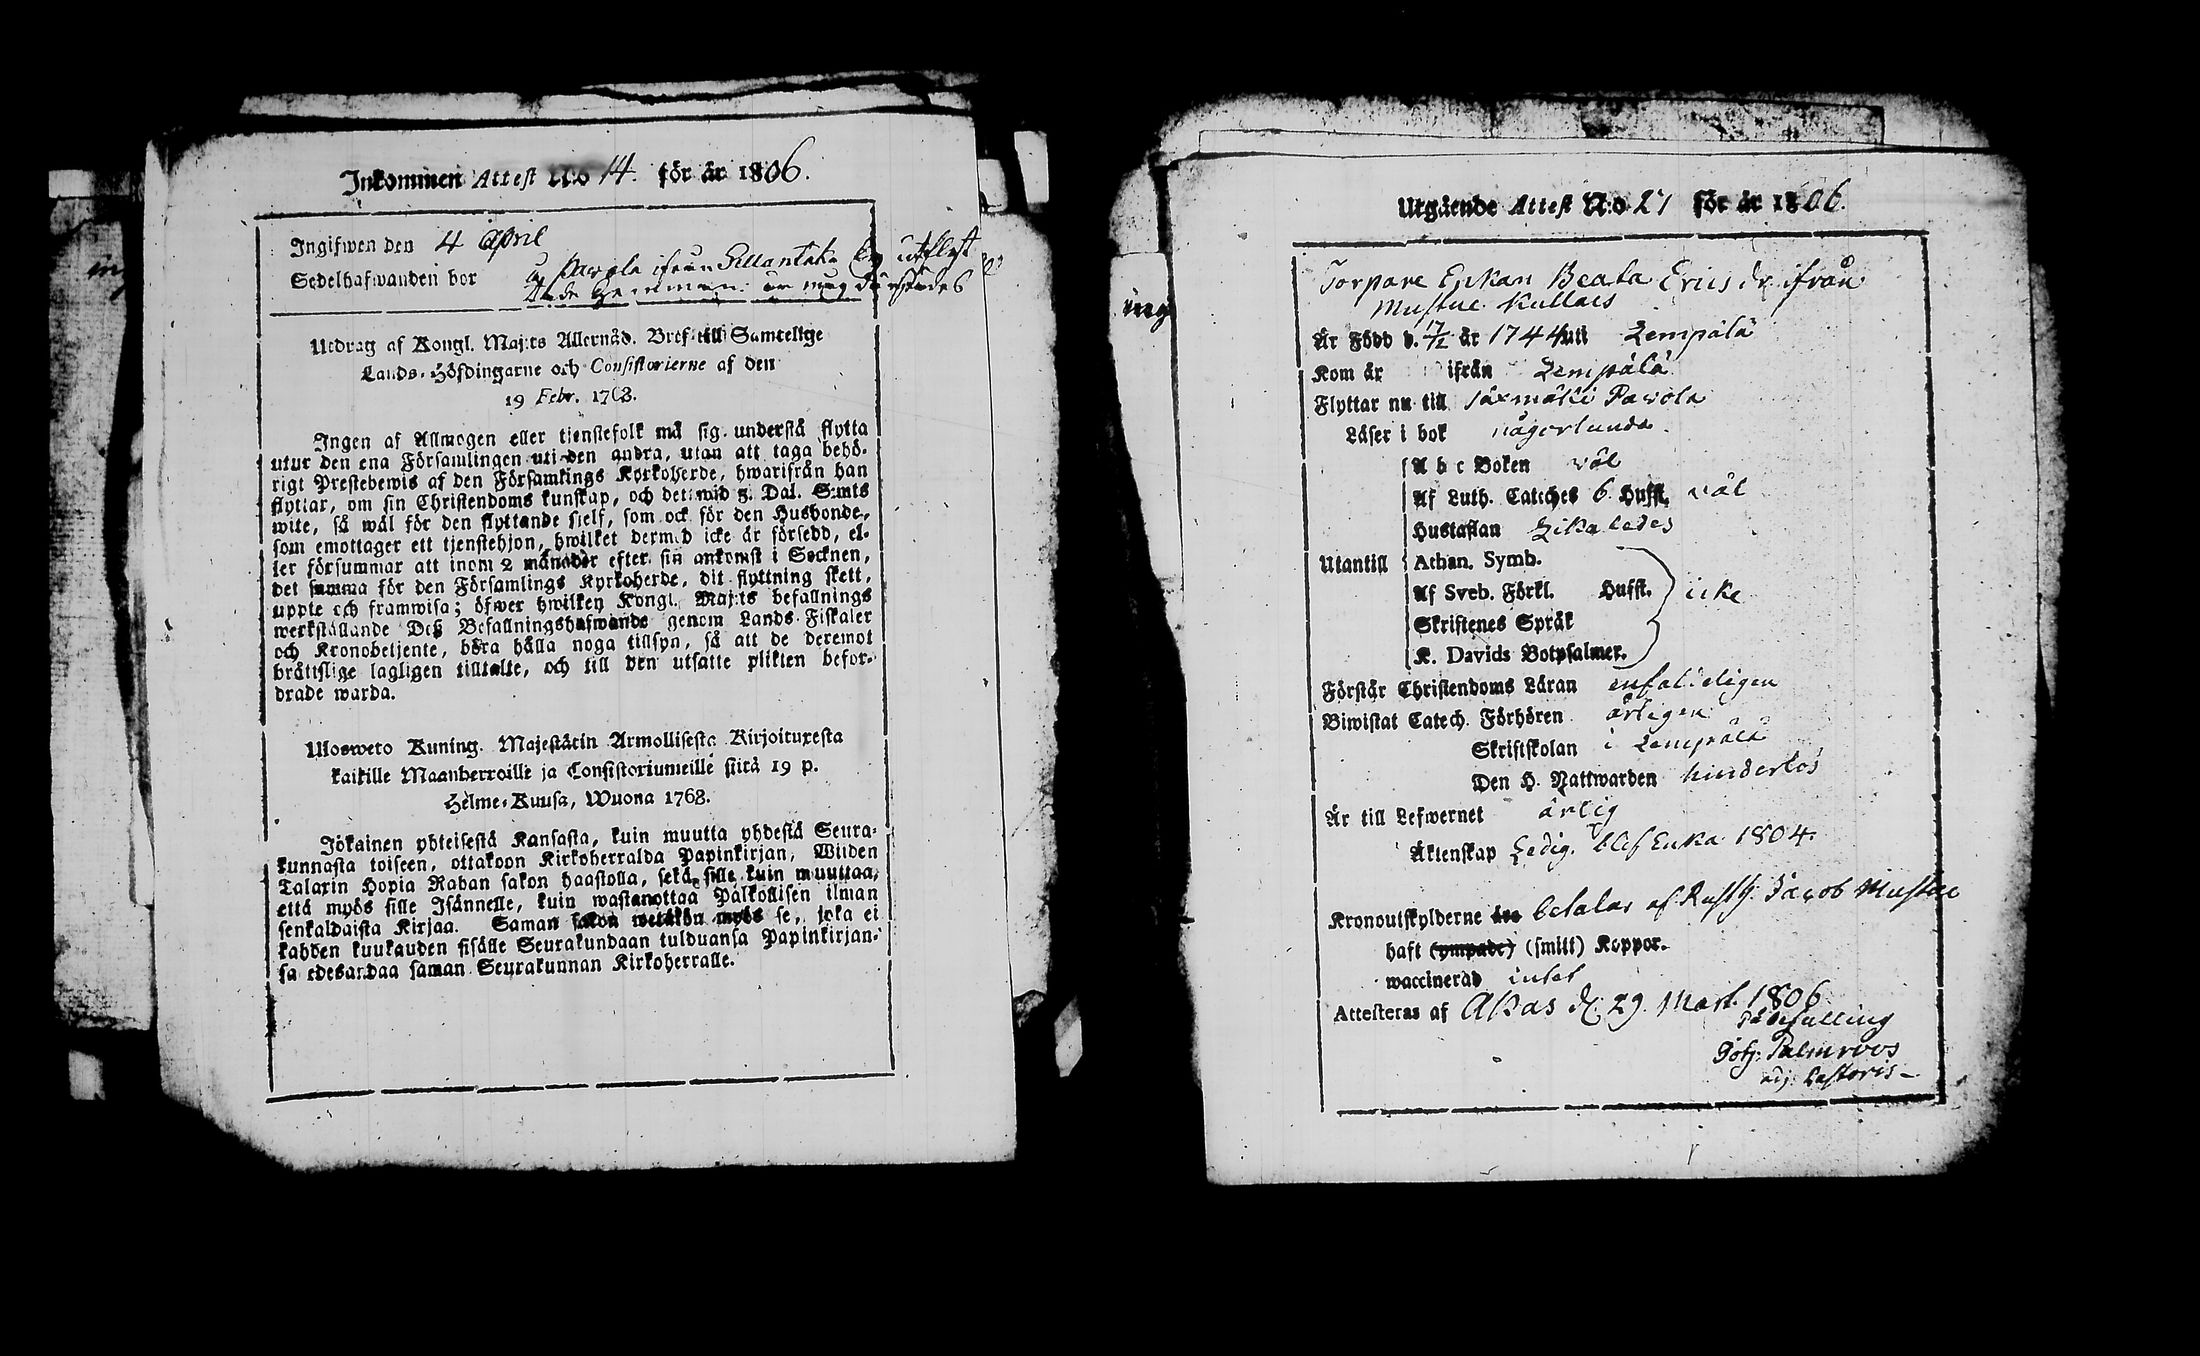 Inkommen Attest N:o 14. för år 1806.
Ingifwen den 4 April
Sedelhafwanden bor
Utdrag af Kongl. Maj:ts Allernåd. Bref till Samtelige
Lands-Höfdingarne och Consistorierne af den
19 Febr. 1763.
Ingen af Allmogen eller tjenstefolk må sig understå flytta
utur den ena Församlingen uti den andra, utan att taga behö-
rigt Prestebewis af den Församlings Kyrkoherde, hwarifrån han
flyttar, om sin Christendoms kunskap, och det wid 3. Dal. S:mts
wite, så wäl för den flyttande sjelf, som ock för den Husbonde,
som emottager ett tjenstehjon, hwilket dermed icke är försedd, el-
ler försummar att inom 2 månader efter sin ankomst i Socknen,
det samma för den Församlings Kyrkoherde, dit flyttning skett,
uppte och framwisa; öfwer hwilken Kongl. Maj:ts befallnings
werkställande Deß Befallningshafwande genom Lands-Fiskaler
och Kronobetjente, böra hålla noga tillsyn, så att de deremot
brättslige lagligen tilltalte, och till den utsatte plikten befor-
drade warda.
Ulosweto Kuning. Majestätin Armollisesta Kirjoituxesta
kaikille Maanherroille ja Consistoriumeille siitä 19 p.
Helme-Kuusa, Wuona 1763.
Jokainen yhteisestä Kansasta, kuin muutta yhdestä Seura-
kunnasta toiseen, ottakoon Kirkoherralda Papinkirjan, Wiiden
Talarin Hopia Rahan sakon haastolla, sekä sille kuin muuttaa,
että myös sille Isännelle, kuin wastanottaa Palkollisen ilman
senkaldaista Kirjaa. Saman sakon wetäkön myös se, joka ei
kahden kuukauden sisälle Seurakundaan tulduansa Papinkirjan-
sa edesandaa saman Seurakunnan Kirkoherralle.
Utgående Attest N:o 27 för år 1806.
Torpare Enkan Beata Ericsdr ifrån
Mustue Kullais
Är Född d. 17/2 år 1744 uti Lempälä
Kom år ifrån Lempälä
Flyttar nu till Säxmäki Pawola
Läser i bok någorlunda.
A b c Boken väl
Af Luth. Catches 6 Hufst. väl
Hustaflan Likaledes
Utantill Athan. Symb.
Af Sveb. Förkl. Hufst. icke
Skriftenes Språk
K. Davids Botpsalmer.
Förstår Christendoms Läran enfaldeligen
Biwistat Catech. Förhören årligen
Skriftskolan i Lempälä
Den H. Nattwarden hinderlös
Är till Lefwernet ärlig
Äktenskap Ledig. blef Enka 1804.
Kronoutskylderne äro betalas af Rusth. Jacob Mustue
haft (ympade) (smitt) Koppor.
waccinerad intet
Attesteras af Akas d. 29. Mart. 1806
På befallning
Joh. Palmroos
adj. Pastoris